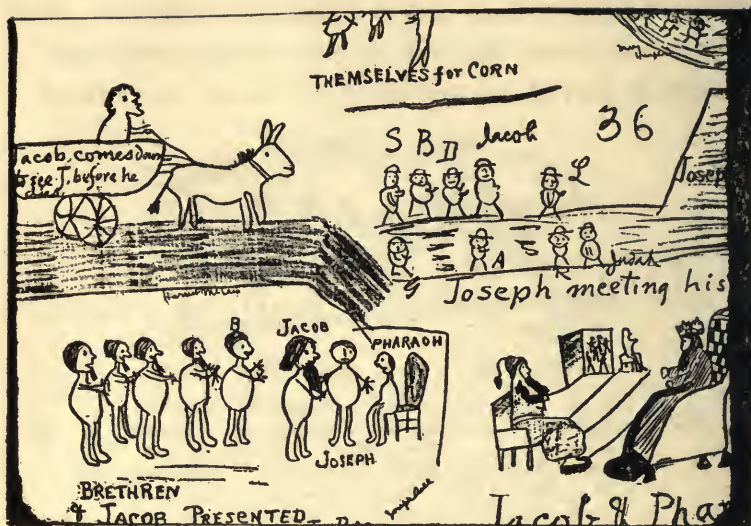 THEMSELVES for CORN
Jacob, comes down
to see J. before he
dies
S B D Jacob 36
L
Joseph
G A R Judah
Joseph meeting his
B
JACOB
PHARAOH
JOSEPH
BRETHREN
& JACOB PRESENTED
Jacob & Pha